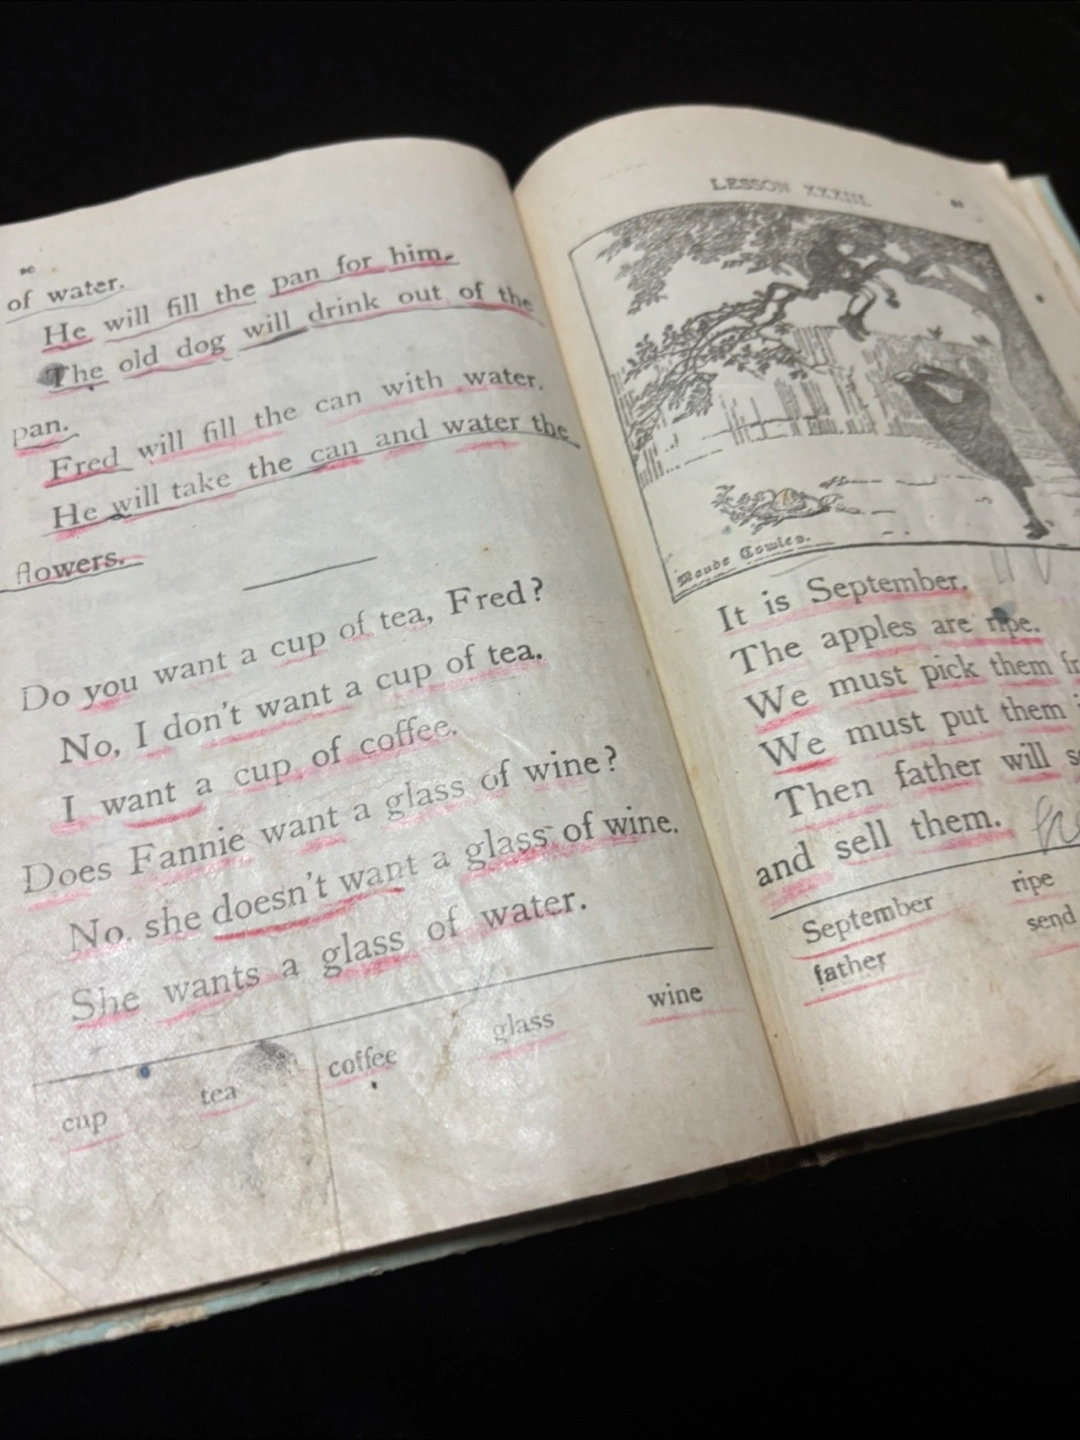 of water.
He will fill the pan for him.
The old dog will drink out of the
pan.
Fred will fill the can with water.
He will take the can and water the
flowers.
Do you want a cup of tea, Fred?
No, I don't want a cup of tea.
I want a cup of coffee.
Does Fannie want a glass of wine?
No, she doesn't want a glass of wine.
She wants a glass of water.
cup tea coffee glass wine
LESSON XXXIII.
Maude Cowles.
It is September.
The apples are ripe.
We must pick them
We must put them
Then father will
and sell them.
September ripe
father send